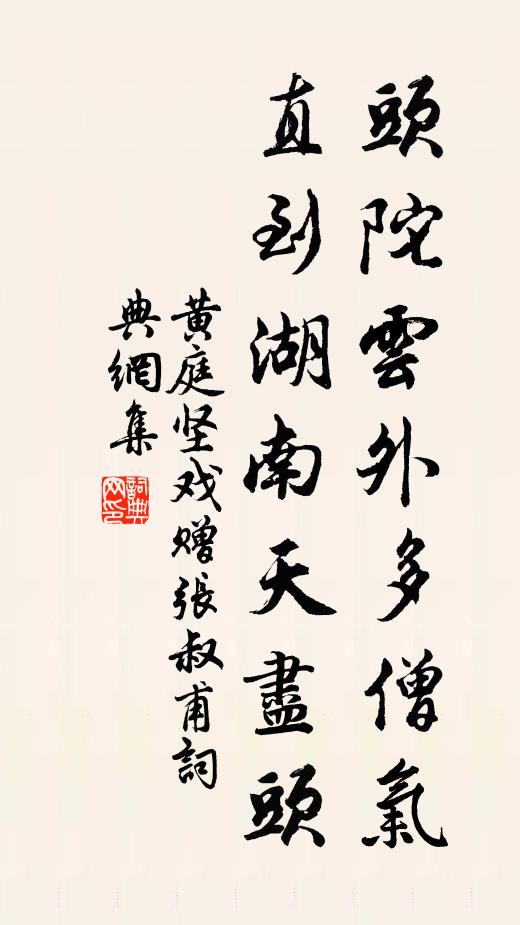 頭陀雲外多僧氣
直到湖南天盡頭
黄庭坚戏赠張叔甫詞
典網集
詞典网印